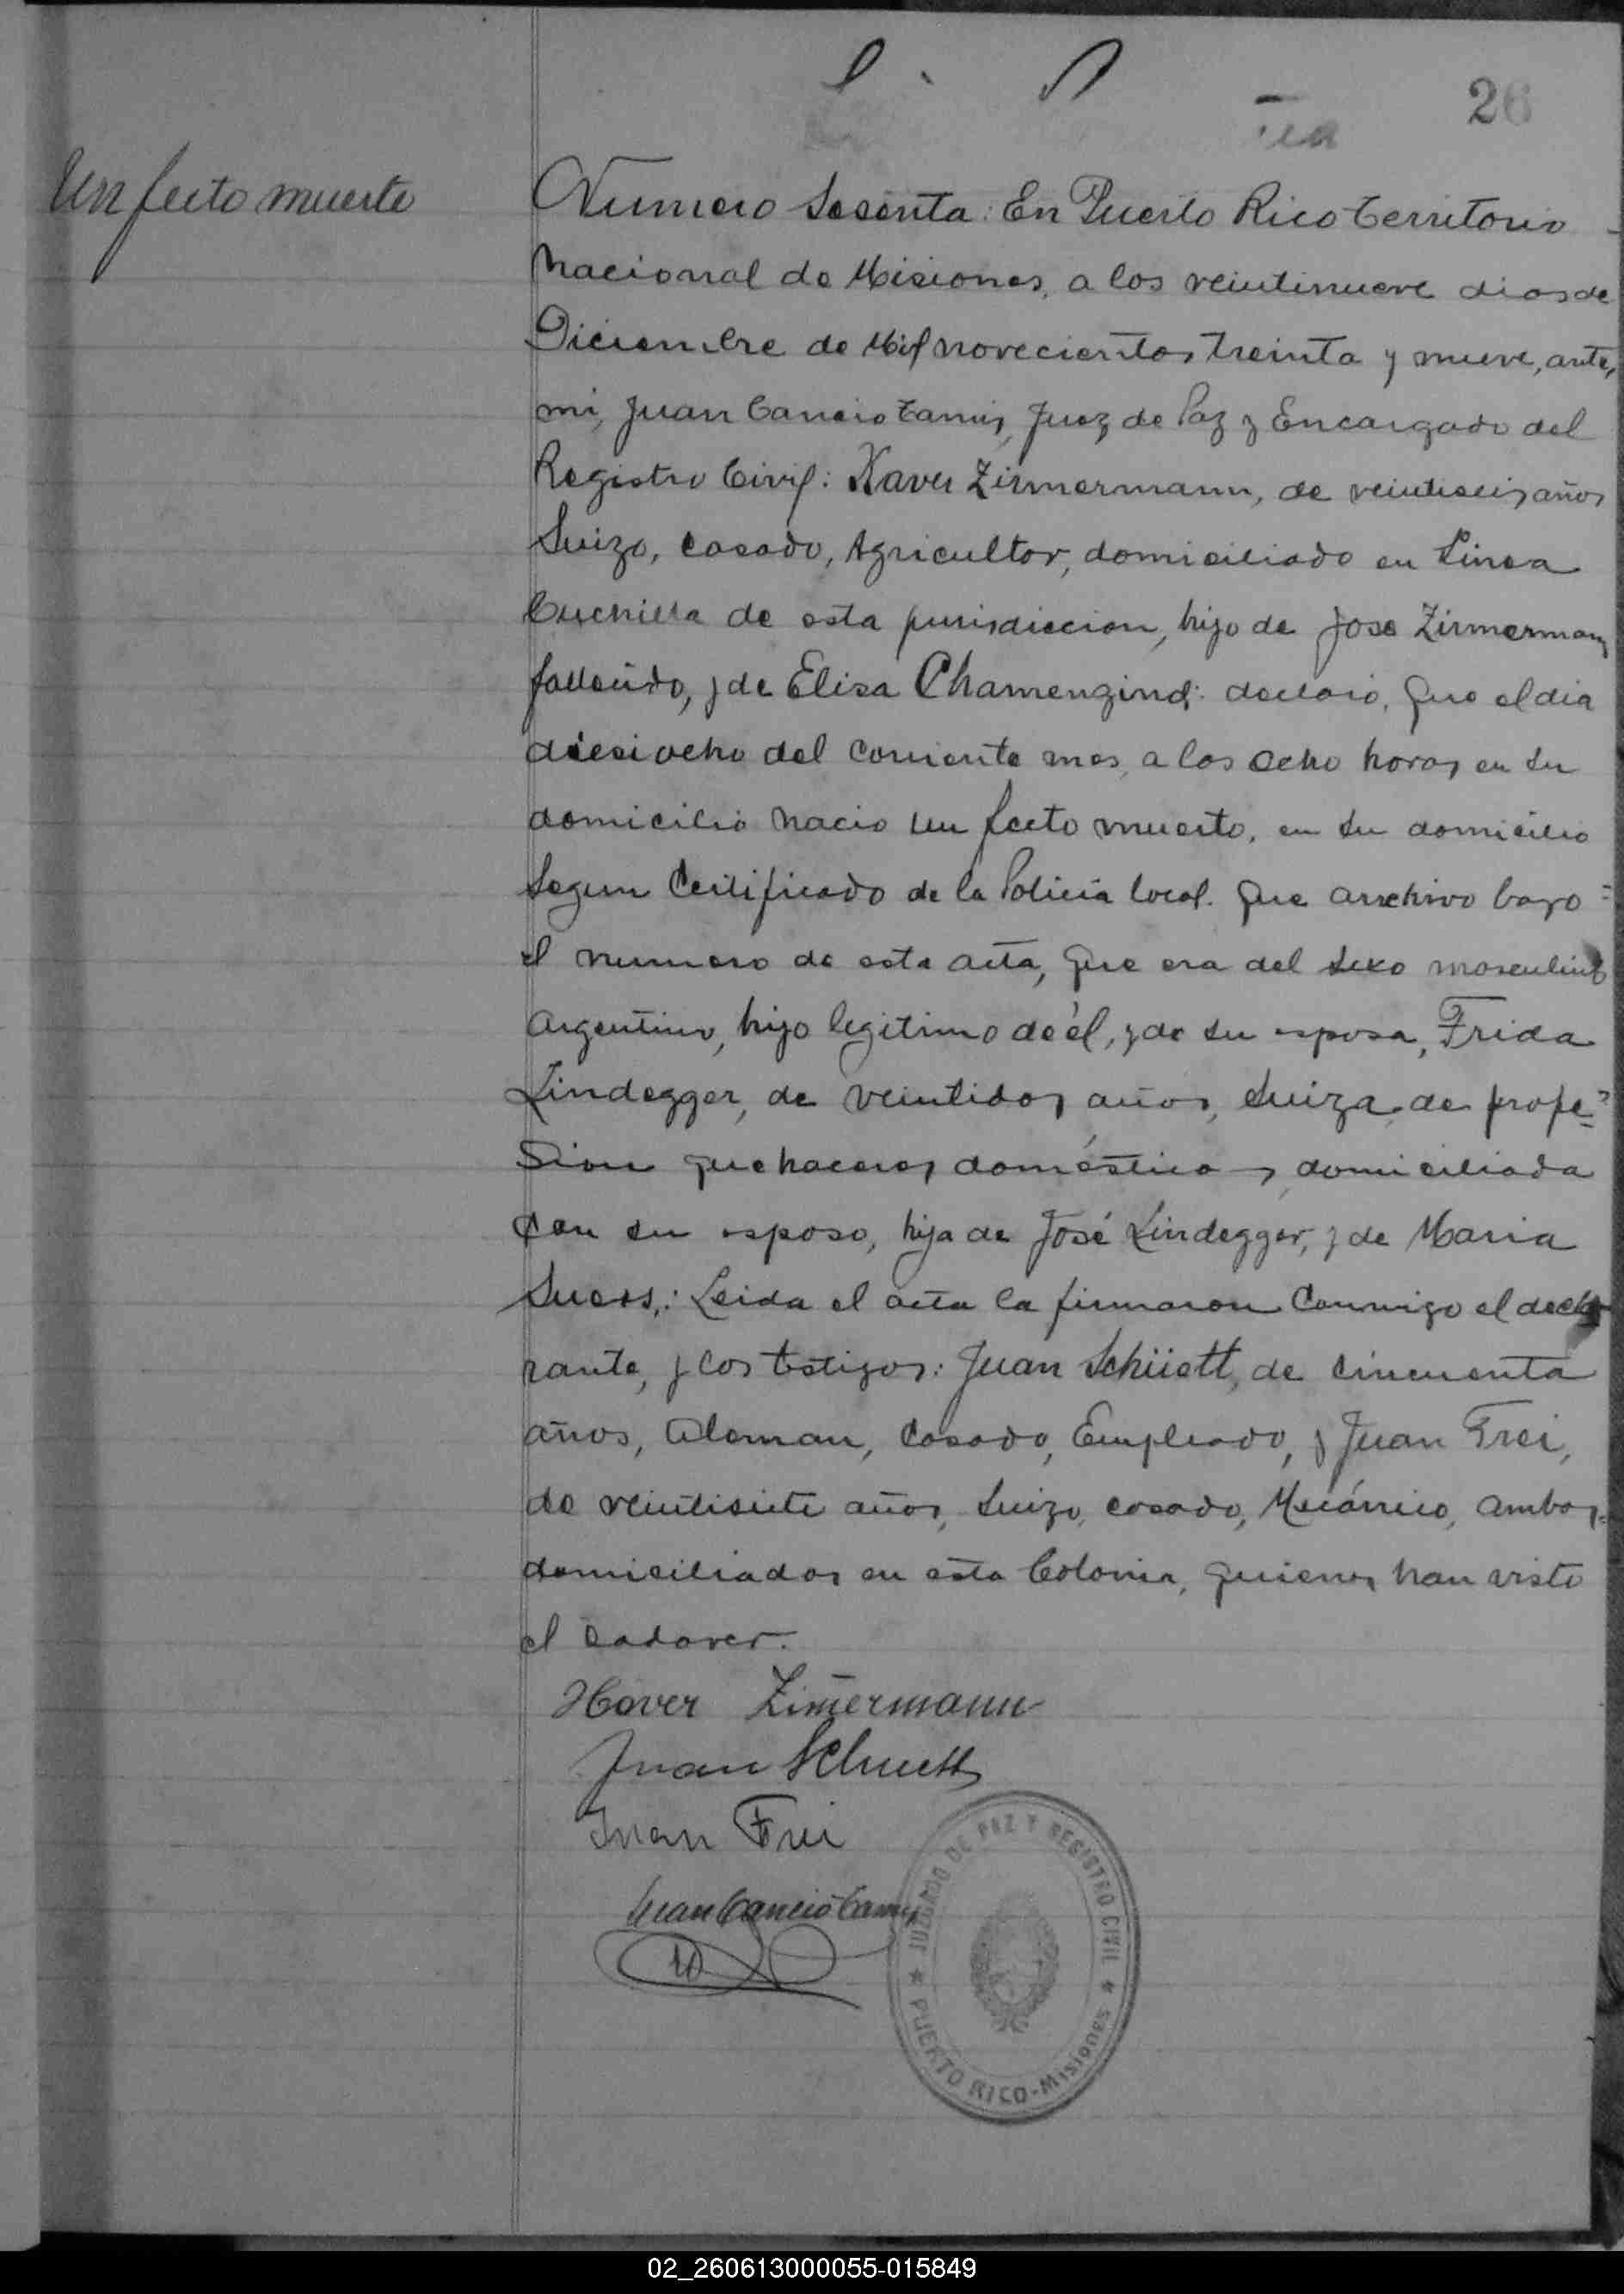 26
Un feeto muerte
Numero Sesenta: En Puerto Rico territorio
Nacional de Misiones, a los veintinueve dias de
Diciembre de Mil novecientos treinta y nueve, ante,
mi, Juan Cancio Camis, Juez de Paz y Encargado del
Registro Civil: Xaver Zimmermann, de veintiseis años
Suizo, casado, Agricultor, domiciliado en Linea
Cuchilla de esta jurisdiccion, hijo de Jose Zimmermann
fallecido, y de Elisa Chamenzind: declaró, Que el dia
diesiocho del corriente mes, a las ocho horas en su
domicilio nacio un feeto muerto, en su domicilio
Segun Certificado de la Policia local. Que archivo bajo
el numero de esta acta, que era del sexo masculino
Argentino, hijo legitimo de él, y de su esposa, Frida
Lindegger, de veintidos años, Suiza, de profe=
sion quehaceres domésticos, domiciliada
con su esposo, hija de José Lindegger, y de Maria
Suess,: Leida el acta la firmaron Conmigo el decla
rante, y los testigos: Juan Schüett, de cincuenta
años, Aleman, Casado, Empleado, y Juan Frei,
de veintisiete años, Suizo, casado, Mecánico, ambos=
domiciliados en esta Colonia, quienes han visto
el cadaver.
Xaver Zimermann
Juan Schuett
Juan Frei
Juan Cancio Camis
JUZGADO DE PAZ Y REGISTRO CIVIL
PUERTO RICO - Misiones
02_260613000055-015849